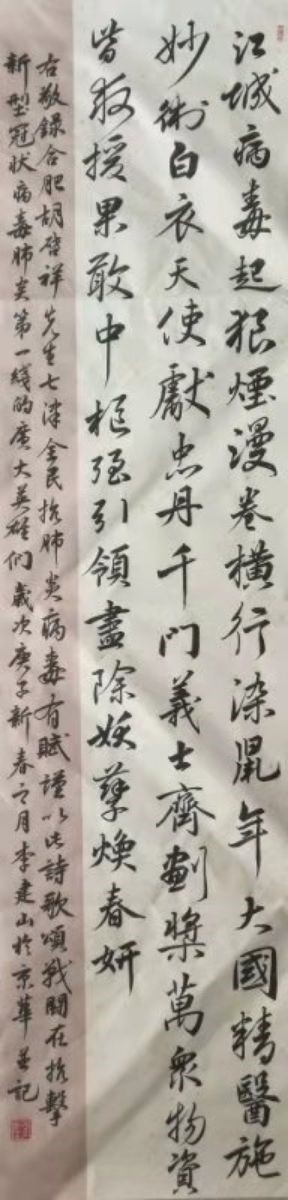 江城病毒起狼煙漫卷橫行染鼠年大國精醫施
妙術白衣天使獻忠丹千門義士齊劃槳萬眾物資
皆救援果敢中樞強引領盡除妖孽煥春妍
右敬錄合肥胡啓祥先生七律全民抗肺炎病毒有賦謹以此詩歌頌戰鬭在抗擊
新型冠状病毒肺炎第一綫的廣大英雄們歲次庚子新春之月李建山於京華并記